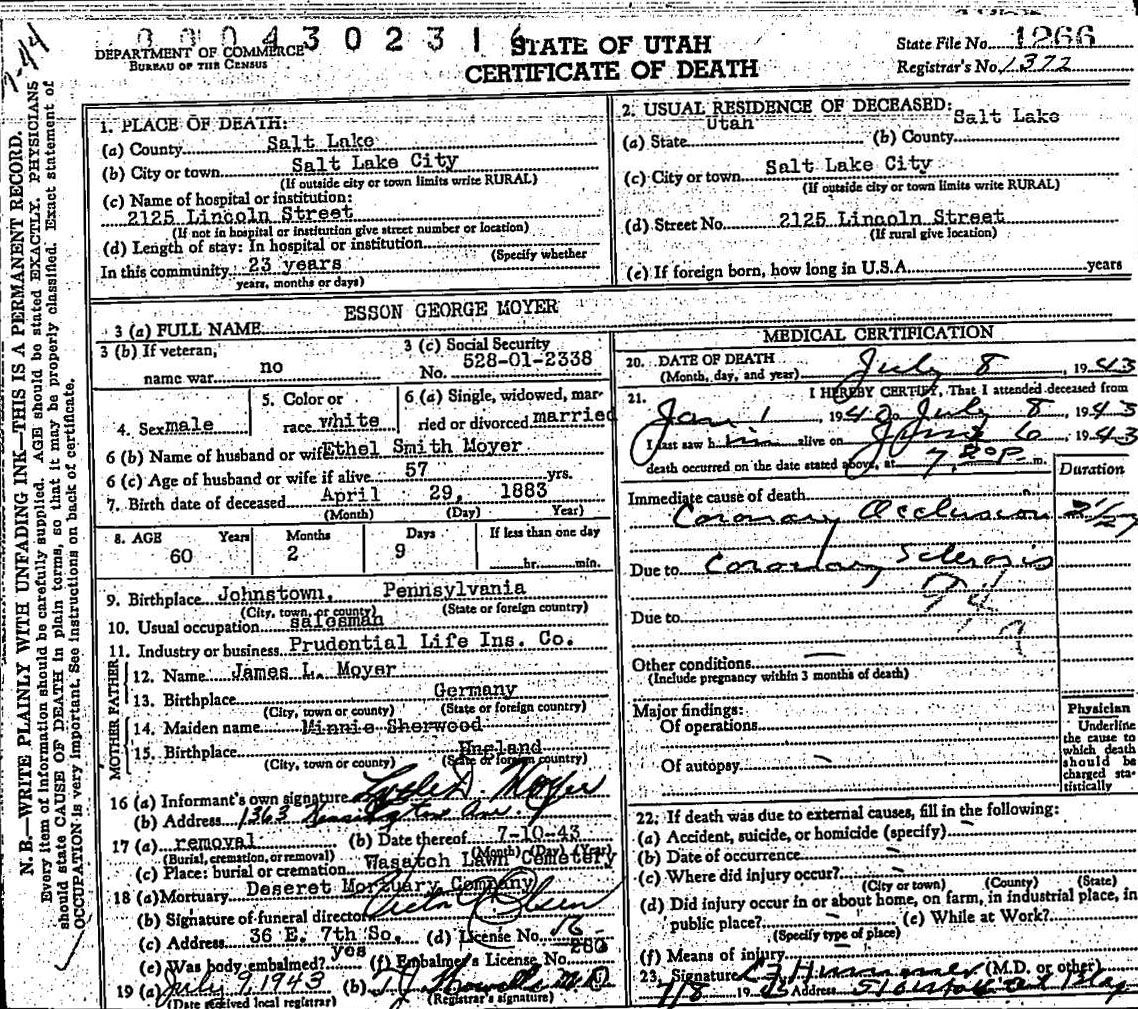 0 0 0 4 3 0 2 3 1 6
DEPARTMENT OF COMMERCE
BUREAU OF THE CENSUS
STATE OF UTAH
CERTIFICATE OF DEATH
State File No. 1266
Registrar's No. 1372
7-44
N. B.—WRITE PLAINLY WITH UNFADING INK—THIS IS A PERMANENT RECORD.
Every item of information should be carefully supplied. AGE should be stated EXACTLY. PHYSICIANS
should state CAUSE OF DEATH in plain terms, so that it may be properly classified. Exact statement of
OCCUPATION is very important. See instructions on back of certificate.
1. PLACE OF DEATH:
(a) County Salt Lake
(b) City or town Salt Lake City
(If outside city or town limits write RURAL)
(c) Name of hospital or institution:
2125 Lincoln Street
(If not in hospital or institution give street number or location)
(d) Length of stay: In hospital or institution
(Specify whether
In this community 23 years
years, months or days)
2. USUAL RESIDENCE OF DECEASED:
(a) State Utah (b) County Salt Lake
(c) City or town Salt Lake City
(If outside city or town limits write RURAL)
(d) Street No. 2125 Lincoln Street
(If rural give location)
(e) If foreign born, how long in U.S.A. years
3 (a) FULL NAME ESSON GEORGE MOYER
3 (b) If veteran, name war no
3 (c) Social Security No. 528-01-2338
4. Sex male
5. Color or race white
6 (a) Single, widowed, married or divorced married
6 (b) Name of husband or wife Ethel Smith Moyer
6 (c) Age of husband or wife if alive 57 yrs.
7. Birth date of deceased April 29, 1883
(Month) (Day) Year)
8. AGE Years Months Days If less than one day
60 2 9 hr. min.
9. Birthplace Johnstown, Pennsylvania
(City, town, or county) (State or foreign country)
10. Usual occupation salesman
11. Industry or business Prudential Life Ins. Co.
FATHER
12. Name James L. Moyer
13. Birthplace Germany
(City, town or county) (State or foreign country)
MOTHER
14. Maiden name Minnie Sherwood
15. Birthplace England
(City, town or county) (State or foreign country)
16 (a) Informant's own signature Lyle D. Moyer
(b) Address 1363 Kensington Ave.
17 (a) removal (b) Date thereof 7-10-43
(Burial, cremation, or removal) (Month) (Day) (Year)
(c) Place: burial or cremation Wasatch Lawn Cemetery
18 (a) Mortuary Deseret Mortuary Company
(b) Signature of funeral director
(c) Address 36 E. 7th So. (d) License No. 16
(e) Was body embalmed? yes (f) Embalmer's License No. 286
19 (a) July 9, 1943 (b) M.D.
(Date received local registrar) (Registrar's signature)
MEDICAL CERTIFICATION
20. DATE OF DEATH July 8, 1943
(Month, day, and year)
21. I HEREBY CERTIFY, That I attended deceased from
Jan 1 1942 July 8, 1943
I last saw him alive on 6, 1943
death occurred on the date stated above, at 7 P. m.
Duration
Immediate cause of death
Coronary Occlusion
Due to Coronary Sclerosis
Due to
Other conditions
(Include pregnancy within 3 months of death)
Major findings:
Of operations
Of autopsy
Physician
Underline
the cause to
which death
should be
charged sta-
tistically
22. If death was due to external causes, fill in the following:
(a) Accident, suicide, or homicide (specify)
(b) Date of occurrence
(c) Where did injury occur?
(City or town) (County) (State)
(d) Did injury occur in or about home, on farm, in industrial place, in
public place? (e) While at Work?
(Specify type of place)
(f) Means of injury
23. Signature (M.D. or other)
7/8 1943 Address